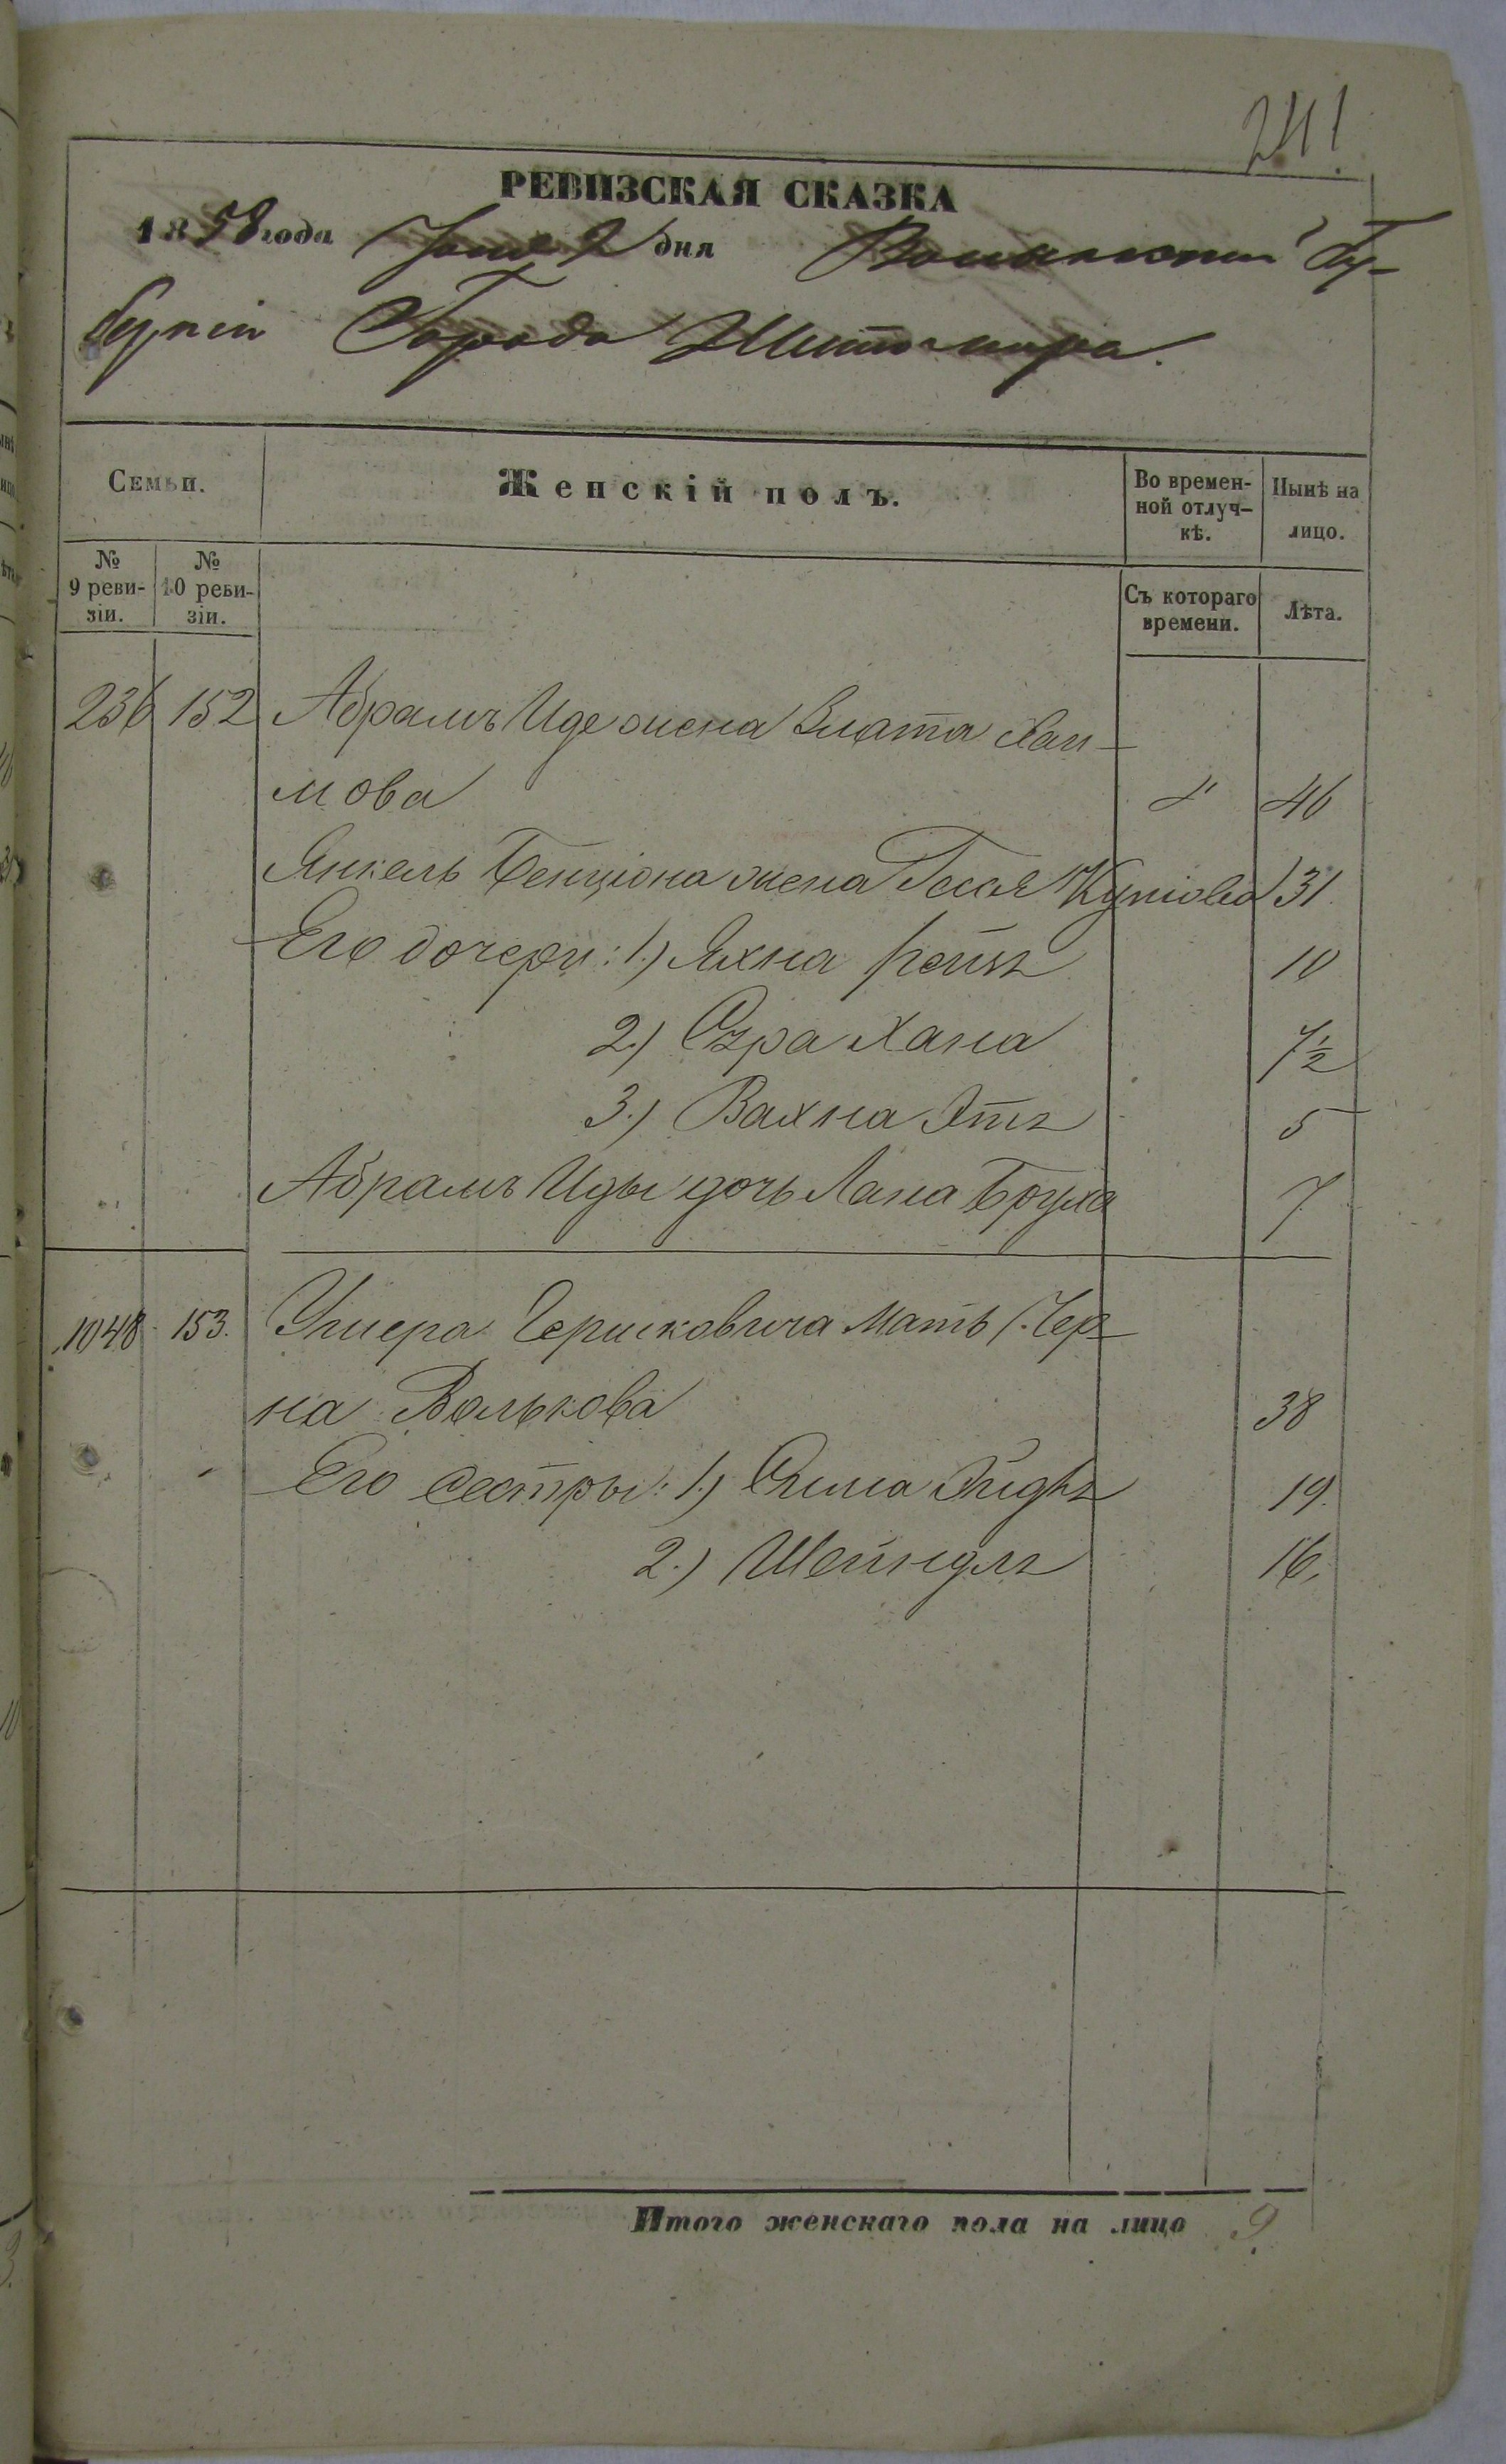 241
РЕВИЗСКАЯ СКАЗКА
1858 года Іюня 2 дня Волынской Гу-
берніи Города Житомира.
Семьи.
Женскій полъ.
Во времен-
ной отлуч-
кѣ.
Нынѣ на
лицо.
№
9 реви-
зіи.
№
10 реви-
зіи.
Съ котораго
времени.
Лѣта.
236 152 Абрамъ Иде жена Злата Хаи-
мова " 46
Янкель Бенціона жена Геся Куніова 31
Его дочери: 1.) Яхна Рейзъ 10
2.) Сура Хана 7½
3.) Вахна Этъ 5
Абрамъ Иды дочь Хана Бруха 7
1048 153. Ушера Гершковича мать Чер-
на Волькова 38
Его сестры: 1.) Сима Эйдль 19.
2.) Шейндль 16.
Итого женскаго пола на лицо 9.